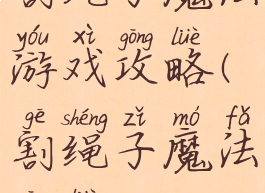 yóu xì gōng lüè
游戏攻略(
gē shéng zǐ mó fǎ
割绳子魔法